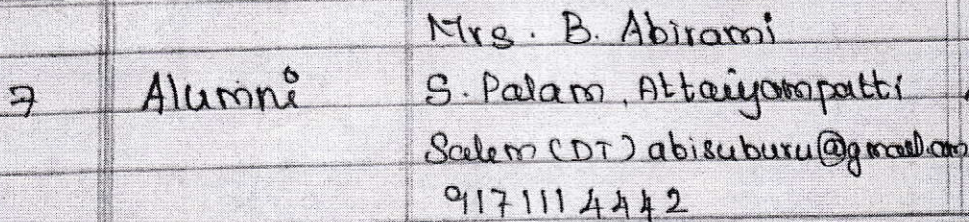 Mrs. B. Abirami
7 Alumni S. Palam, Attaiyampatti
Salem (DT) abisuburu@gmail.com
9171114442